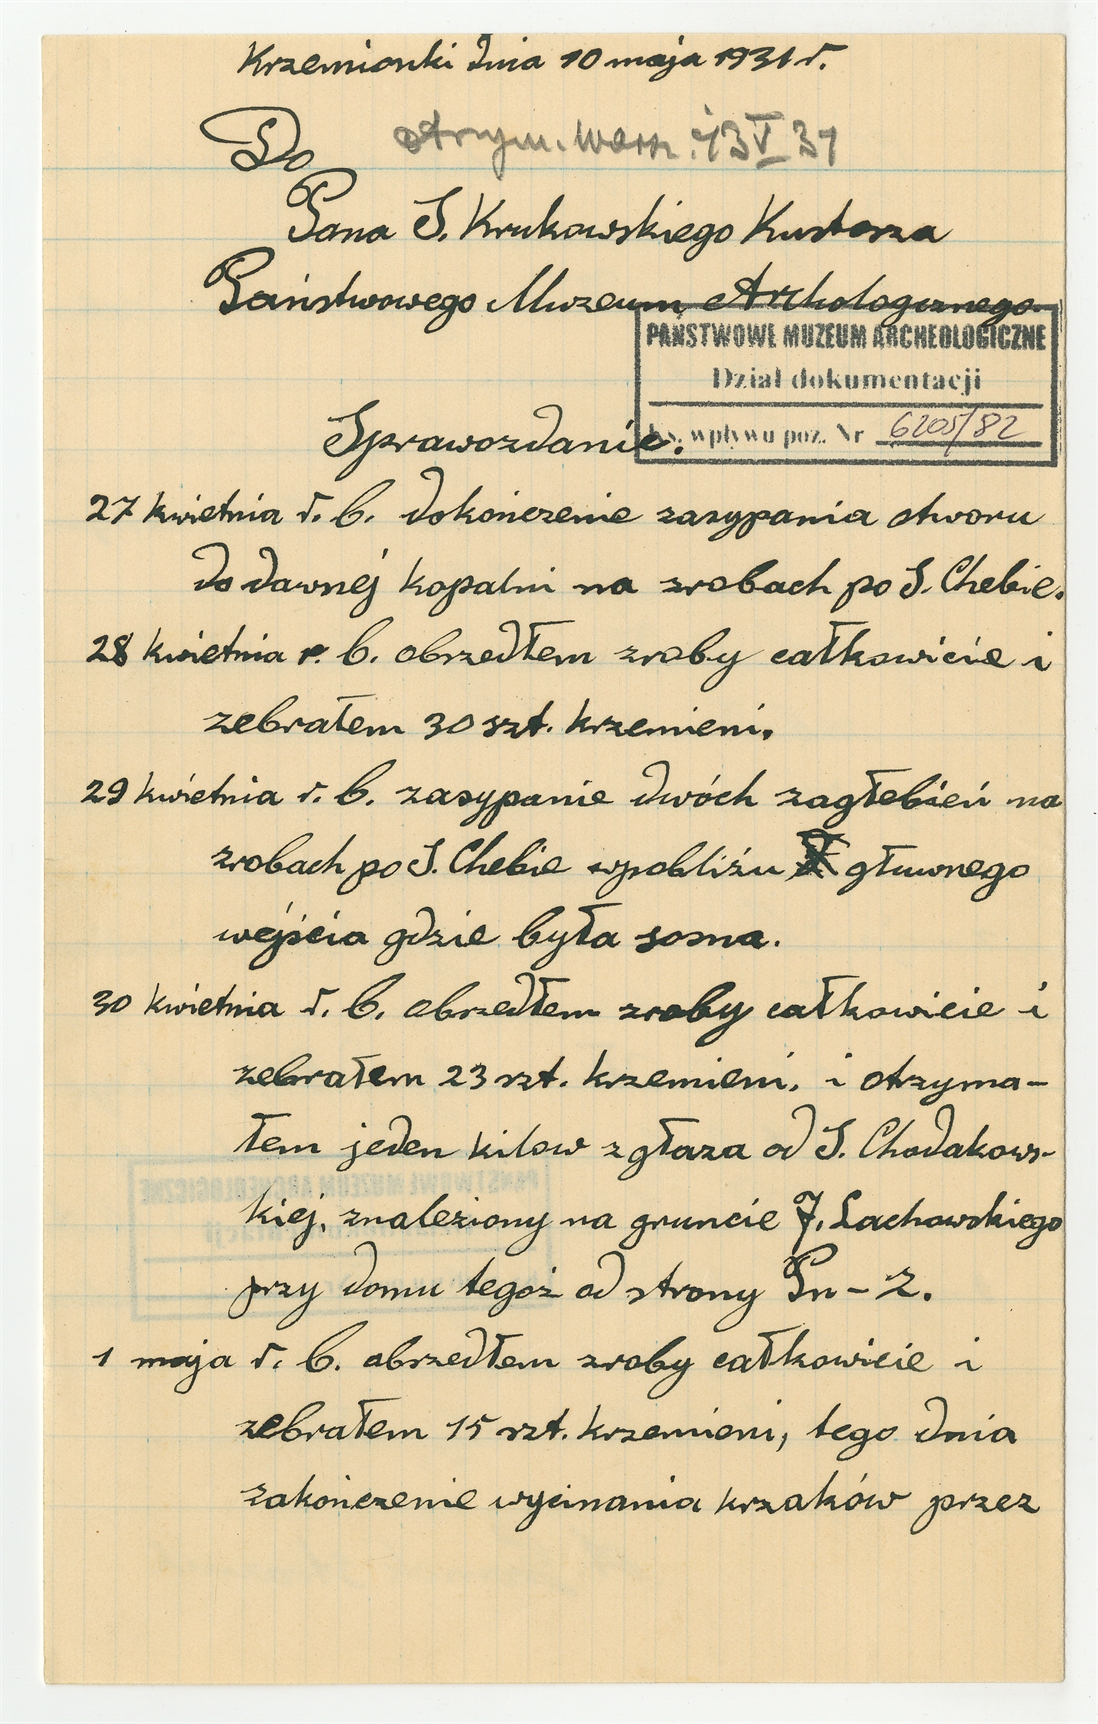 Krzemionki dnia 10 maja 1931 r.
Do
otrzym. Warsz. 13 V 31
Pana S. Krukowskiego Kustosza
Państwowego Muzeum Archologicznego
PAŃSTWOWE MUZEUM ARCHEOLOGICZNE
Dział dokumentacji
Ks. wpływu poz. Nr 6205/82
Sprawozdanie.
27 kwietnia r. b. dokończenie zasypania otworu
do dawnéj kopalni na zrobach po S. Chebie.
28 kwietnia r. b. obszedłem zroby całkowicie i
zebrałem 30 szt. krzemieni.
29 kwietnia r. b. zasypanie dwóch zagłebień na
zrobach po S. Chebie wpobliżu głuwnego
wéjścia gdzie była sosna.
30 kwietnia r. b. obszedłem zroby całkowicie i
zebrałem 23 szt. krzemieni. i otrzyma-
łem jeden kilow z głaza od S. Chodakows-
kiej, znaleziony na gruncie J. Lachowskiego
przy domu tegoż od strony Pn – Z.
1 maja r. b. obszedłem zroby całkowicie i
zebrałem 15 szt. krzemieni, tego dnia
zakończenie wycinania krzaków przez